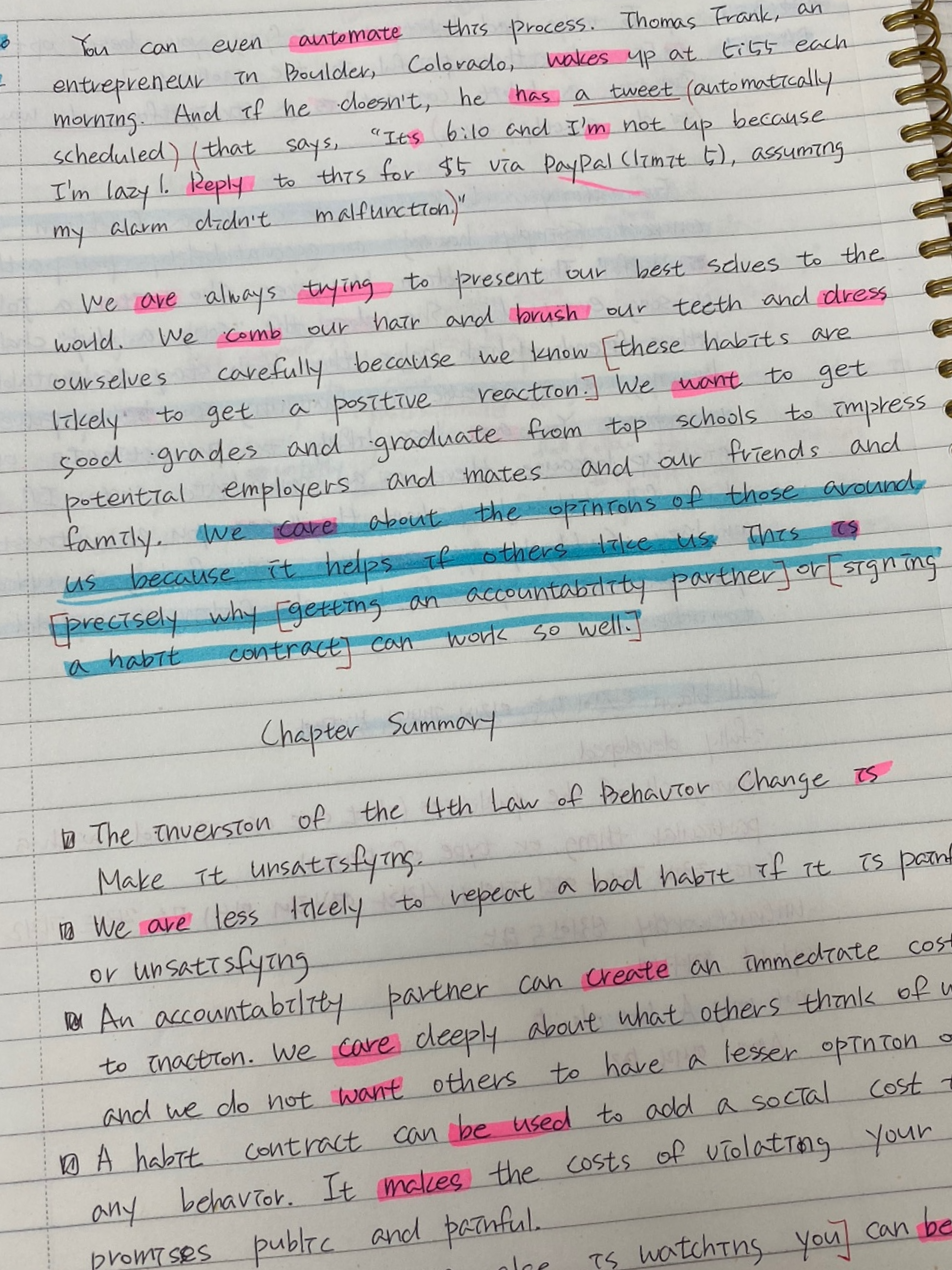 You can even automate this process. Thomas Frank, an
entrepreneur in Boulder, Colorado, wakes up at 5:55 each
morning. And if he doesn't, he has a tweet (automatically
scheduled) (that says, "It's 6:10 and I'm not up because
I'm lazy! Reply to this for $5 via PayPal (limit 5), assuming
my alarm didn't malfunction)"
We are always trying to present our best selves to the
world. We comb our hair and brush our teeth and dress
ourselves carefully because we know [these habits are
likely to get a positive reaction.] We want to get
good grades and graduate from top schools to impress
potential employers and mates and our friends and
family. We care about the opinions of those around
us because it helps if others like us. This is
[precisely why [getting an accountability partner] or [signing
a habit contract] can work so well.]
Chapter Summary
The inversion of the 4th Law of Behavior Change is
Make it unsatisfying.
We are less likely to repeat a bad habit if it is painf
or unsatisfying
An accountability partner can create an immediate cost
to inaction. We care deeply about what others think of
and we do not want others to have a lesser opinion o
A habit contract can be used to add a social cost t
any behavior. It makes the costs of violating your
promises public and painful.
is watching you] can be